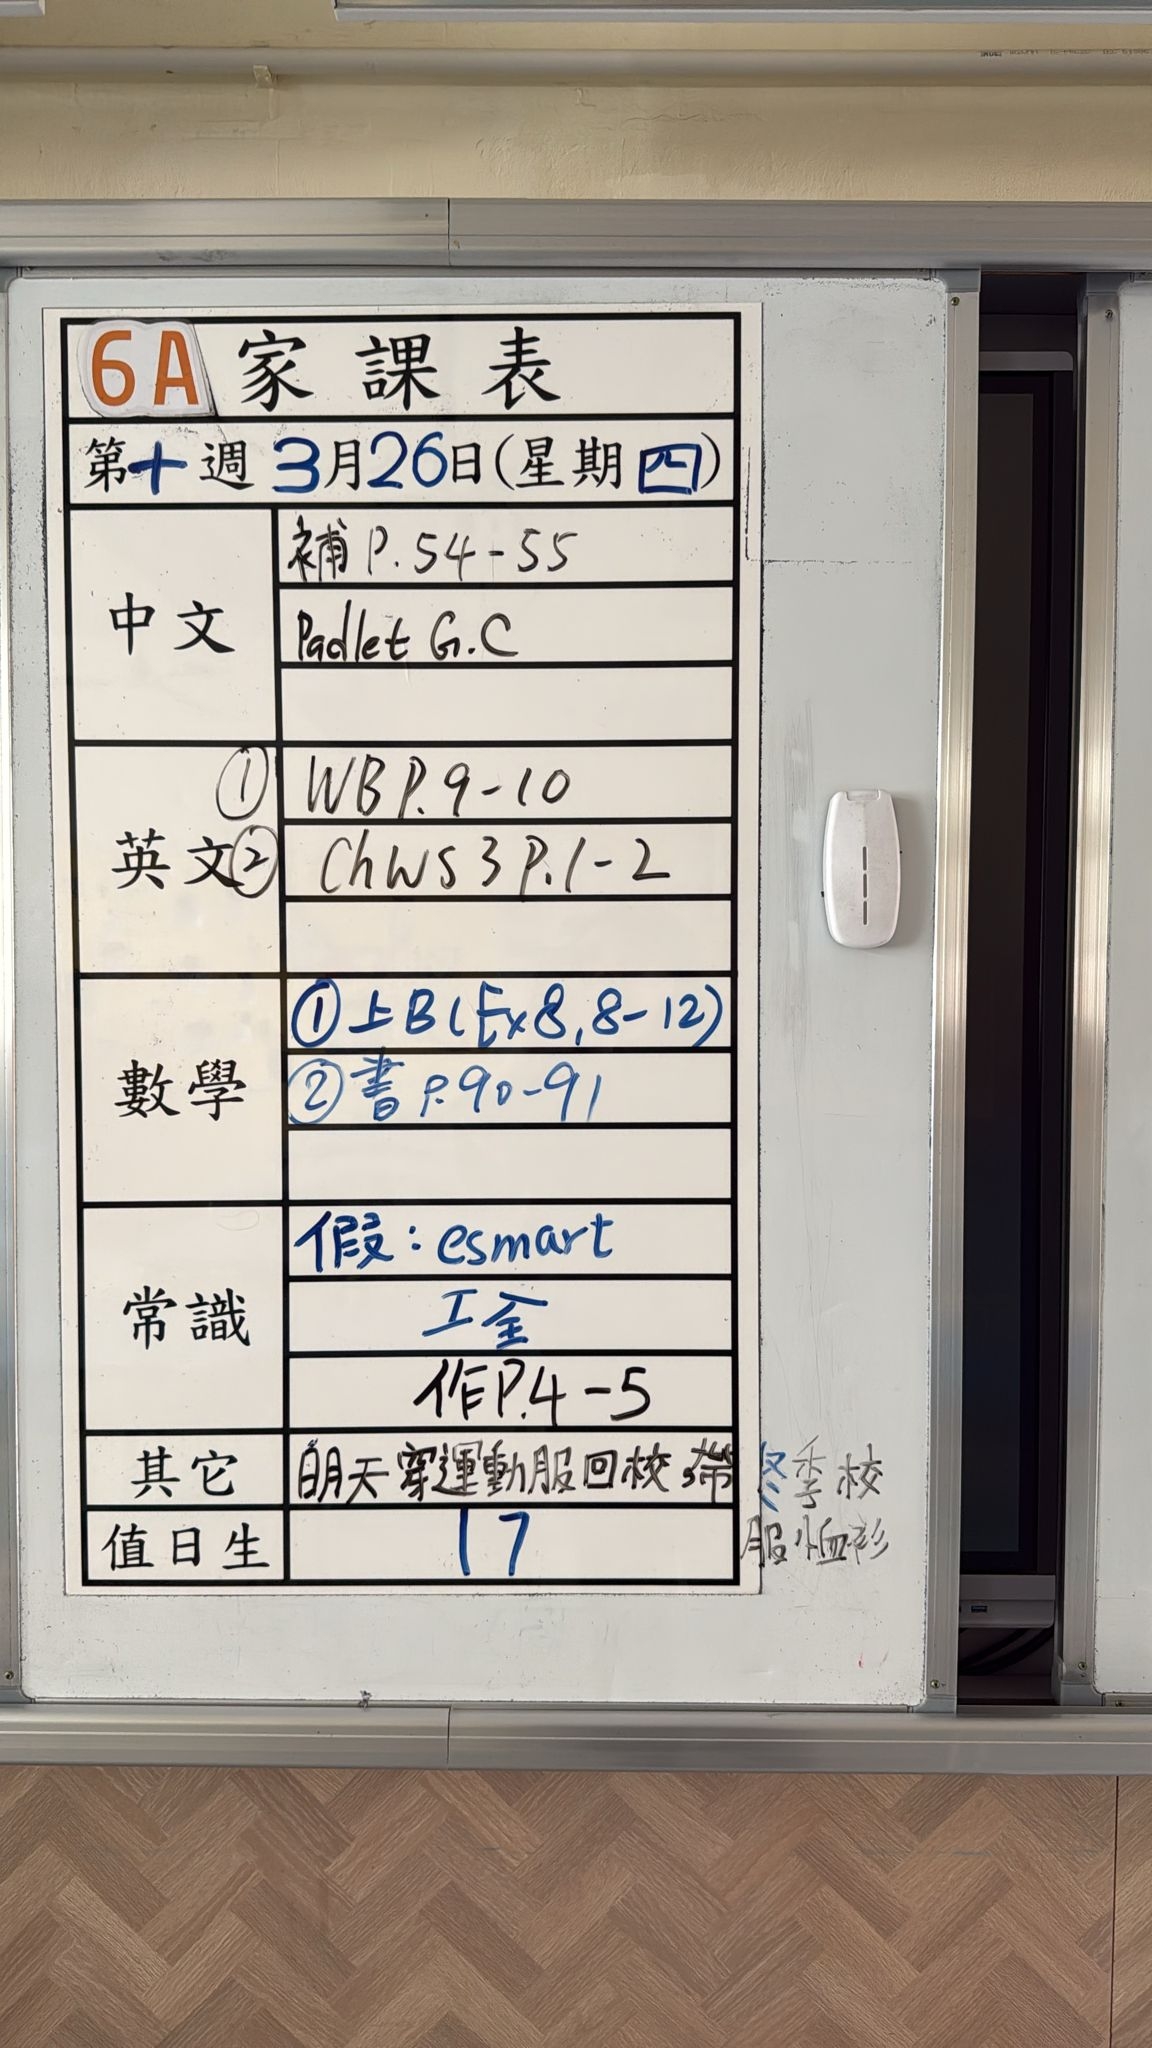 6A 家課表
第十週 3月26日(星期四)
中文
補 P.54-55
Padlet G.C
英文
① WB P.9-10
② Ch WS 3 P.1-2
數學
① 上B (Ex8, 8-12)
② 書 P.90-91
常識
假：esmart
工全
作P.4-5
其它
明天穿運動服回校,帶冬季校
服恤衫
值日生
17